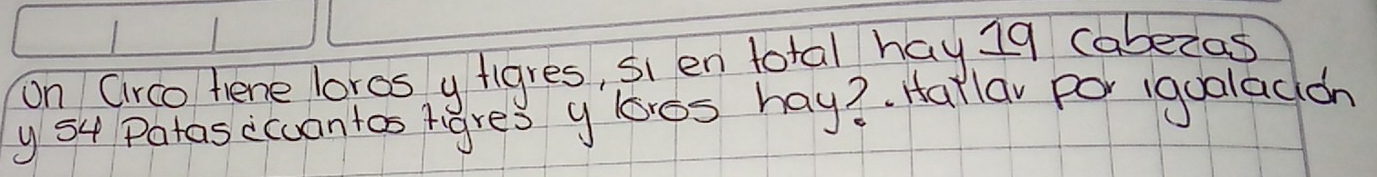 Un Circo tiene loros y tigres, si en total hay 19 cabezas
y 54 Patas ¿cuantos tigres y loros hay?. Hallar por igualación